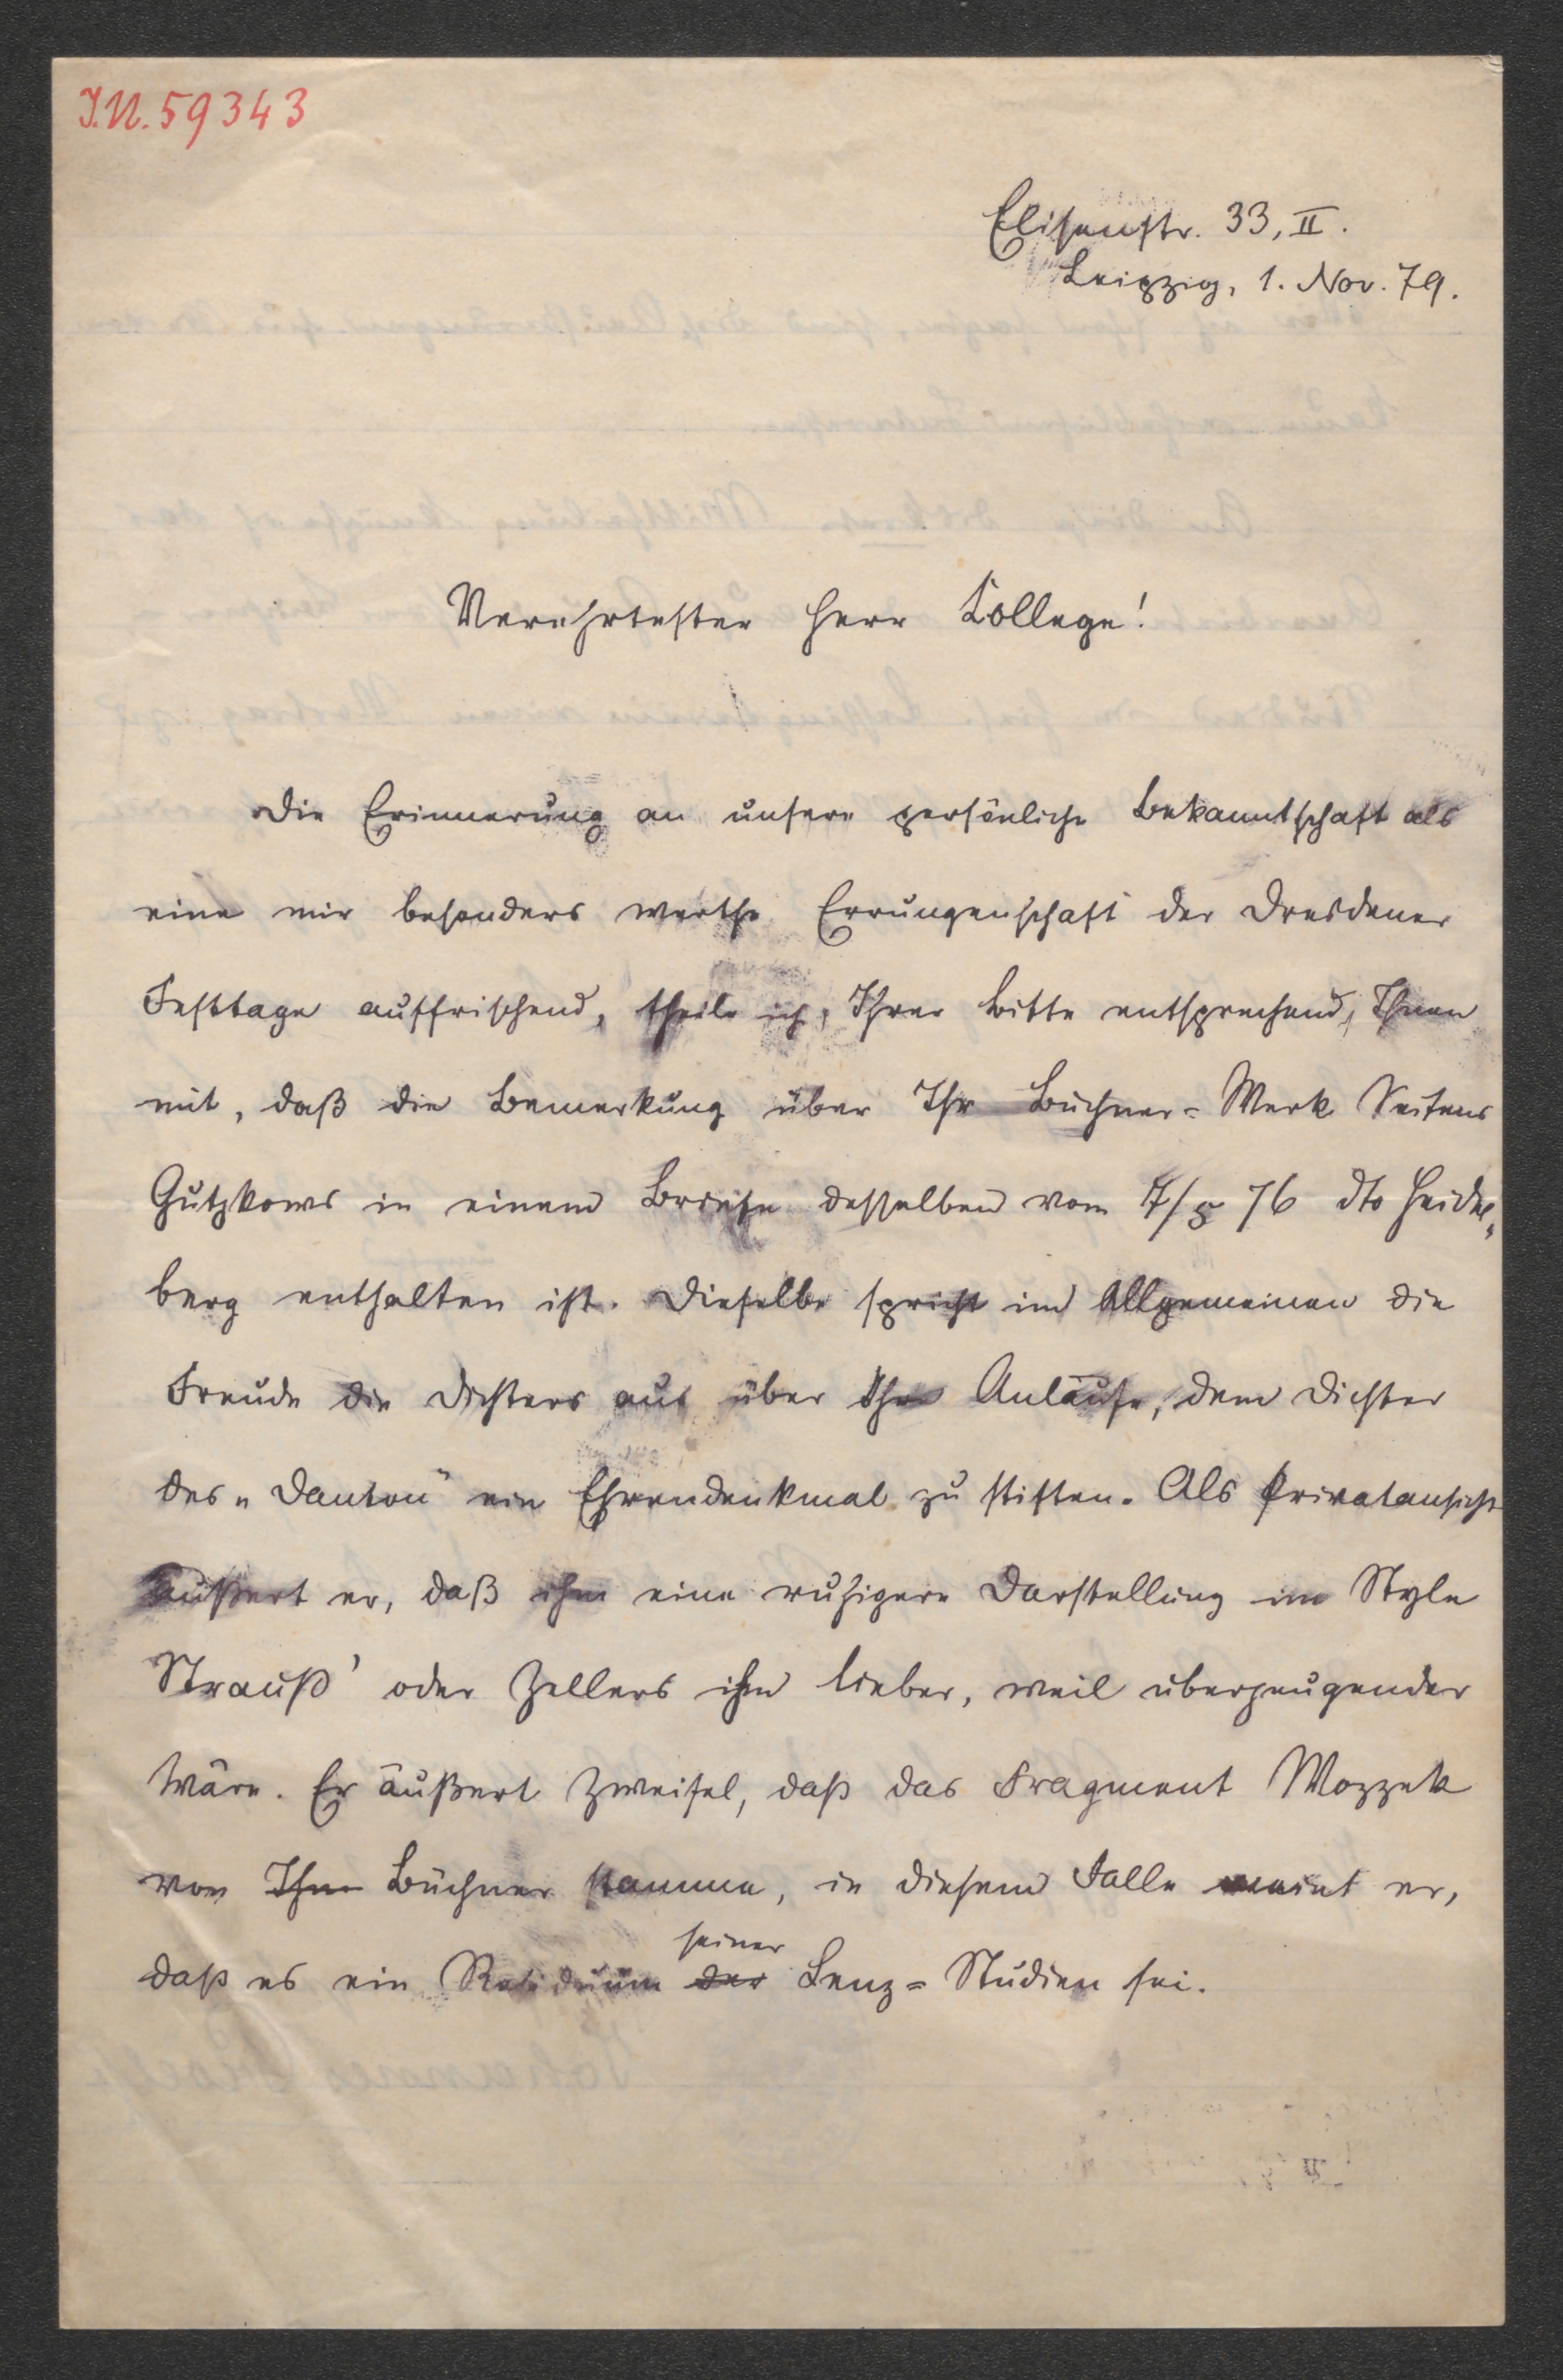 I.N. 59343
Elisenstr. 33, II.
Leipzig, 1. Nov. 79.
Verehrtester Herr College!
Die Erinnerung an unsere persönliche Bekanntschaft als
eine mir besonders werthe Errungenschaft der Dresdener
Festtage auffrischend, theile ich, Ihrer Bitte entsprechend, Ihnen
mit, daß die Bemerkung über Ihr Büchner-Werk Seitens
Gutzkows in einem Briefe desselben vom 76 dto Heidel-
berg enthalten ist. Dieselbe spricht im Allgemeinen die
Freude des Dichters aus über Ihre Anläufe, dem Dichter
des „Danton" ein Ehrendenkmal zu stiften. Als Privatansicht
äußert er, daß ihm eine ruhigere Darstellung im Style
Strauß' oder Zellers ihm lieber, weil überzeugender
wäre. Er äußert Zweifel, daß das Fragment Wozzek
von Ihm Büchner stamme, in diesem Falle meint er,
seiner
daß es ein Residuum der Lenz-Studien sei.